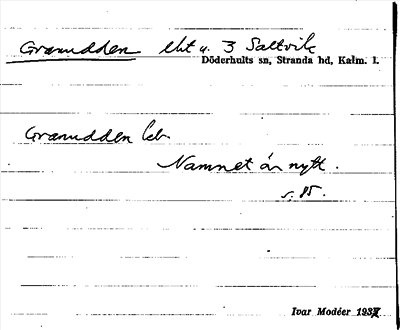 Granudden lht u. 3 Saltvik
Döderhults sn, Stranda hd, Kalm. l.
Granudden leb
Namnet är nytt.
s. 85.
Ivar Modéer 1937